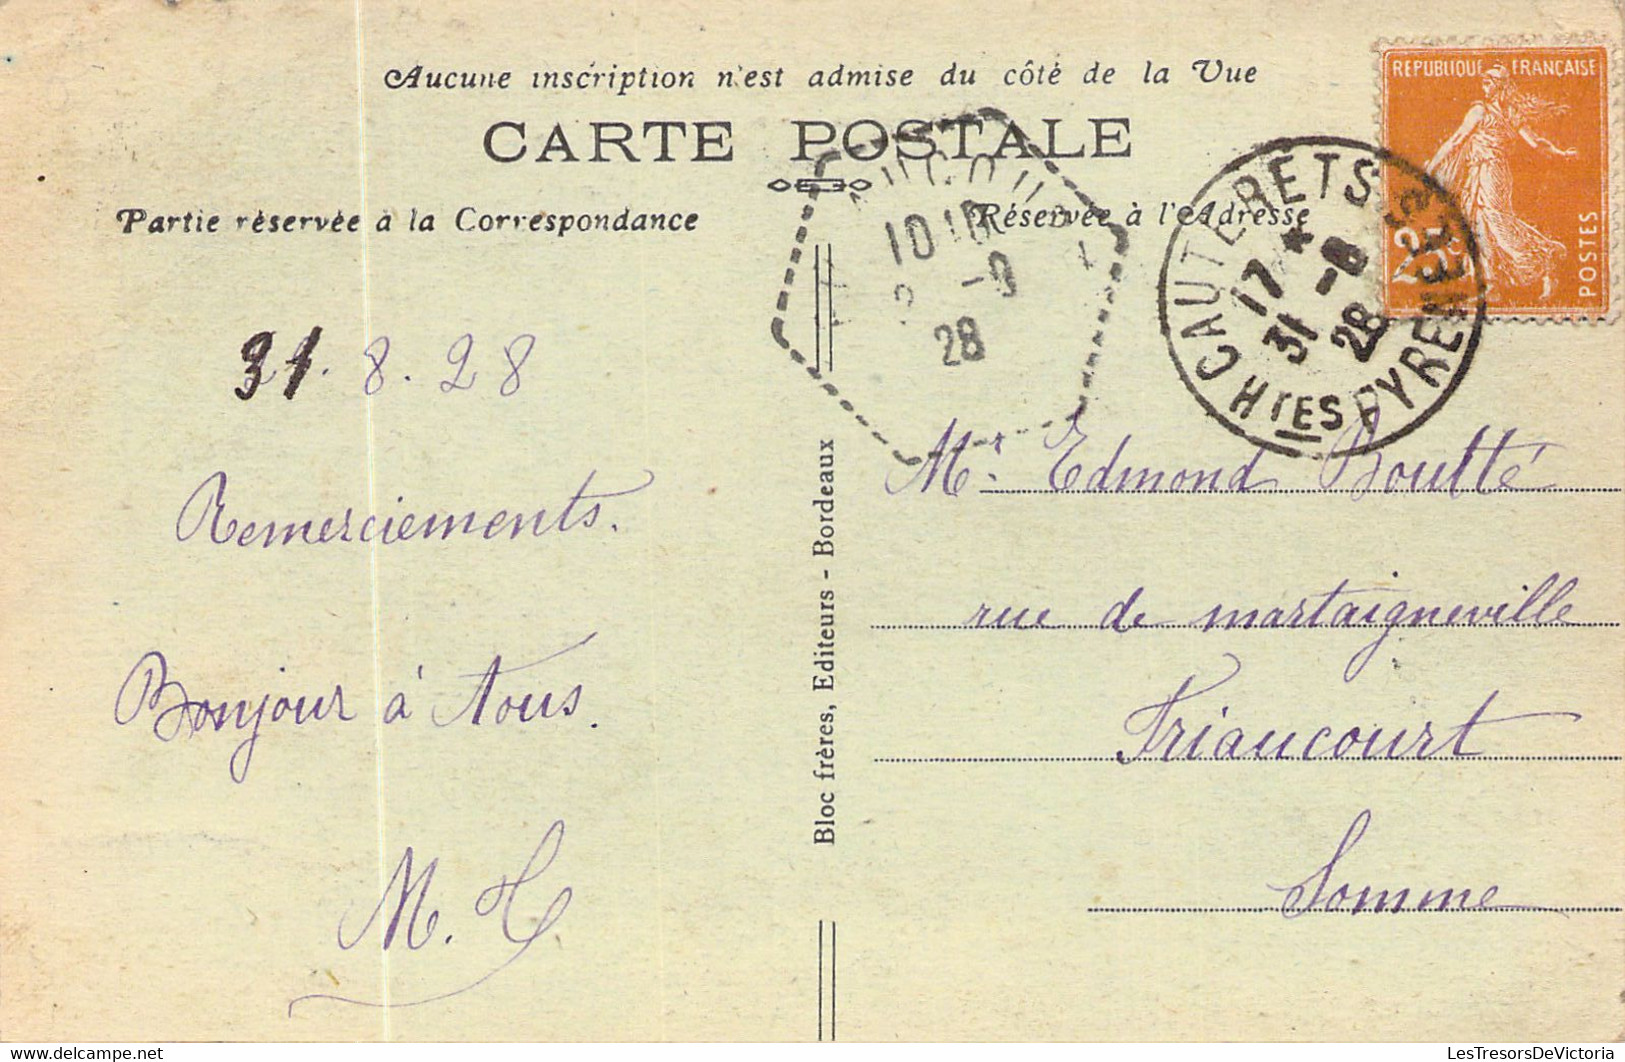 Aucune inscription n'est admise du côté de la Vue
CARTE POSTALE
Partie réservée à la Correspondance
Réservée à l'Adresse
REPUBLIQUE FRANÇAISE
25c
POSTES
CAUTERETS
17 * 31 -8 28
HTES PYRENEES
10
28
31. 8. 28
Remerciements.
Bonjour à Tous.
M.
Bloc frères, Editeurs - Bordeaux
Mr. Edmond Boutté
rue de martaigneville
Friaucourt
Somme
LesTresorsDeVictoria.com
LesTresorsDeVictoria